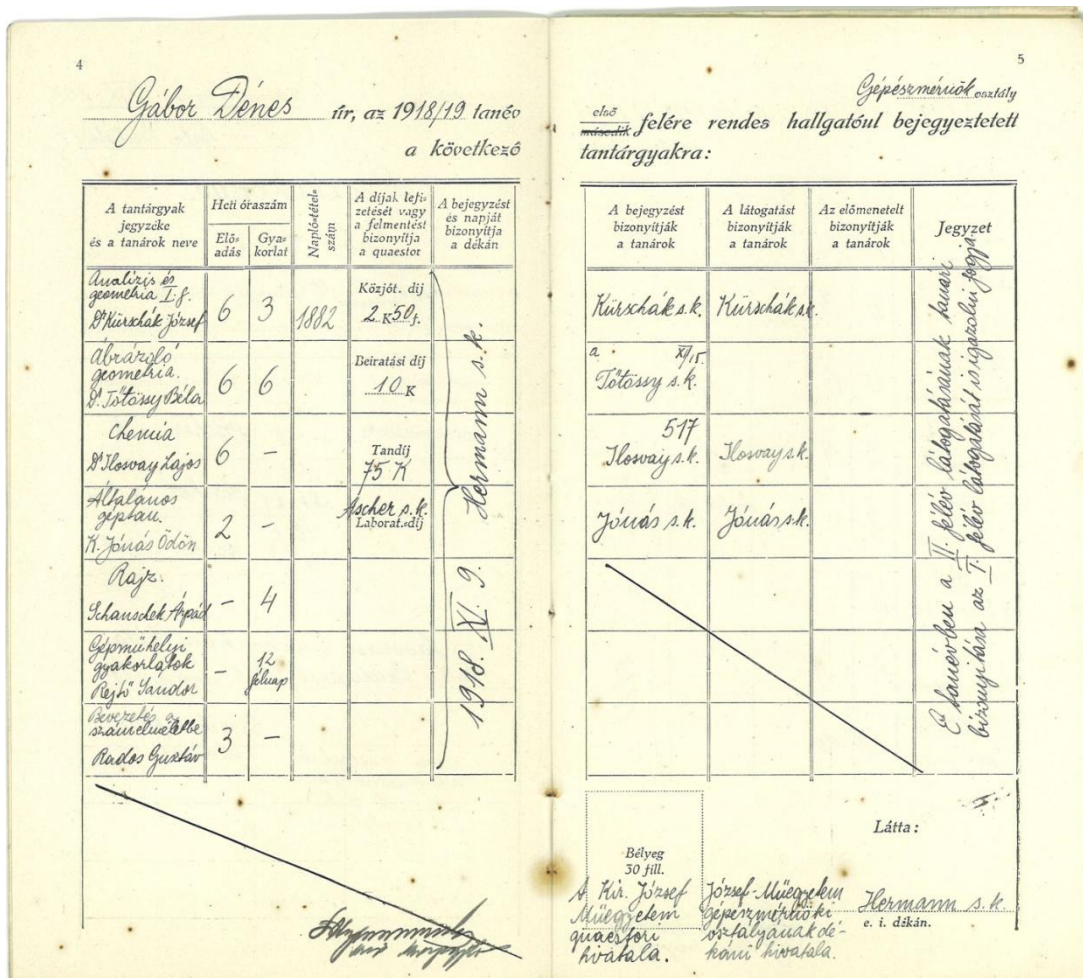 4
Gábor Dénes úr, az 1918/19 tanév
a következő
A tantárgyak
jegyzéke
és a tanárok neve
Heti óraszám
Elő-
adás
Gya-
korlat
Napló-tétel-
szám
A díjak lefi-
zetését vagy
a felmentést
bizonyítja
a quaestor
A bejegyzést
és napját
bizonyítja
a dékán
Analízis és
geometria I. f.
Dr Kürschák József
6
3
1882
Közjót. díj
2 K 50 f.
Ábrázoló
geometria.
Dr. Tőtössy Béla
6
6
Beiratási díj
10 K
Chemia
Dr Ilosvay Lajos
6
–
Tandíj
75 K
Általános
géptan.
K. Jónás Ödön
2
–
Ascher s.k.
Laborat.-díj
Rajz.
Schauschek Árpád
–
4
Gépműhelyi
gyakorlatok
Rejtő Sándor
–
12
félnap
Bevezetés a
számelméletbe
Rados Gusztáv
3
–
1918. XI. 9. Hermann s.k.
5
Gépészmérnök osztály
első
második felére rendes hallgatóul bejegyeztetett
tantárgyakra:
A bejegyzést
bizonyítják
a tanárok
A látogatást
bizonyítják
a tanárok
Az előmenetelt
bizonyítják
a tanárok
Jegyzet
Kürschák s.k.
Kürschák s.k.
a XI/15.
Tőtössy s.k.
517
Ilosvay s.k.
Ilosvay s.k.
Jónás s.k.
Jónás s.k.
E tanévben a II. félév látogatásának tanári
bizonyítása az I. félév látogatását is igazolni fogja.
Bélyeg
30 fill.
A Kir. József
Műegyetem
quaestori
hivatala.
József-Műegyetem
gépészmérnöki
osztályának dé-
káni hivatala.
Látta:
Hermann s.k.
e. i. dékán.